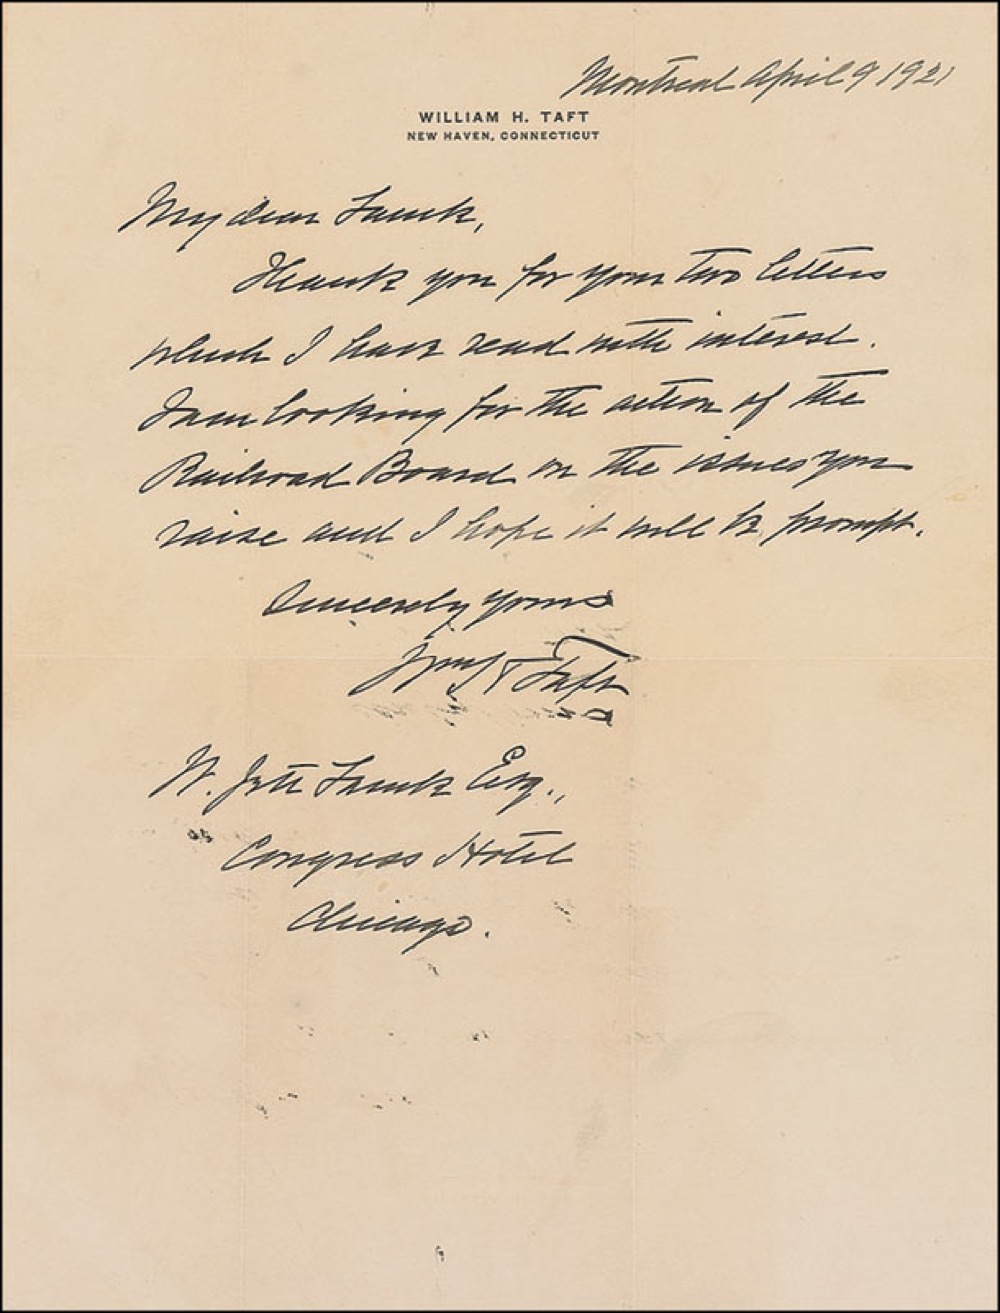 Montreal April 9 1921
WILLIAM H. TAFT
NEW HAVEN, CONNECTICUT
My dear Lauck,
Thank you for your two letters
which I have read with interest.
I am looking for the action of the
Railroad Board on the issues you
raise and I hope it will be prompt.
Sincerely yours
Wm H Taft
W. Jett Lauck Esq.,
Congress Hotel
Chicago.